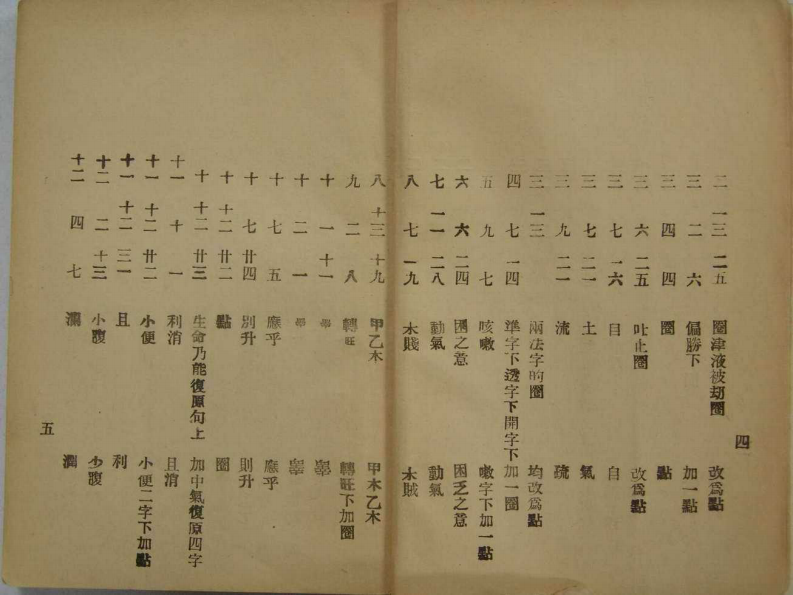 四
二 一三 二五 圈津液被刼圈 改爲點
三 二 六 偏勝下 加一點
三 四 四 圈 點
三 六 二五 吐止圈 改爲點
三 七 一六 目 自
三 七 二一 土 氣
三 九 二一 流 疏
三 一三 兩法字的圈 均改爲點
四 七 一四 準字下透字下開字下 加一圈
五 九 七 咳嗽 嗽字下加一點
六 六 二四 困之意 困乏之意
七 一一 二八 動氣 動氣
八 七 一九 木賤 木賊
八 十三 十九 甲乙木 甲木乙木
九 二 八 轉旺 轉旺下加圈
十 一 十一
十 二 一
十 七 五 應乎 應乎
十 七 廿四 別升 則升
十 十二 廿二 點 圈
十 十二 廿三 生命乃能復原句上 加中氣復原四字
十一 十 一 利消 且消
十一 十二 廿二 小便 小便二字下加點
十一 十二 三一 且 利
十二 二 十三 小腹 少腹
十二 四 七
五